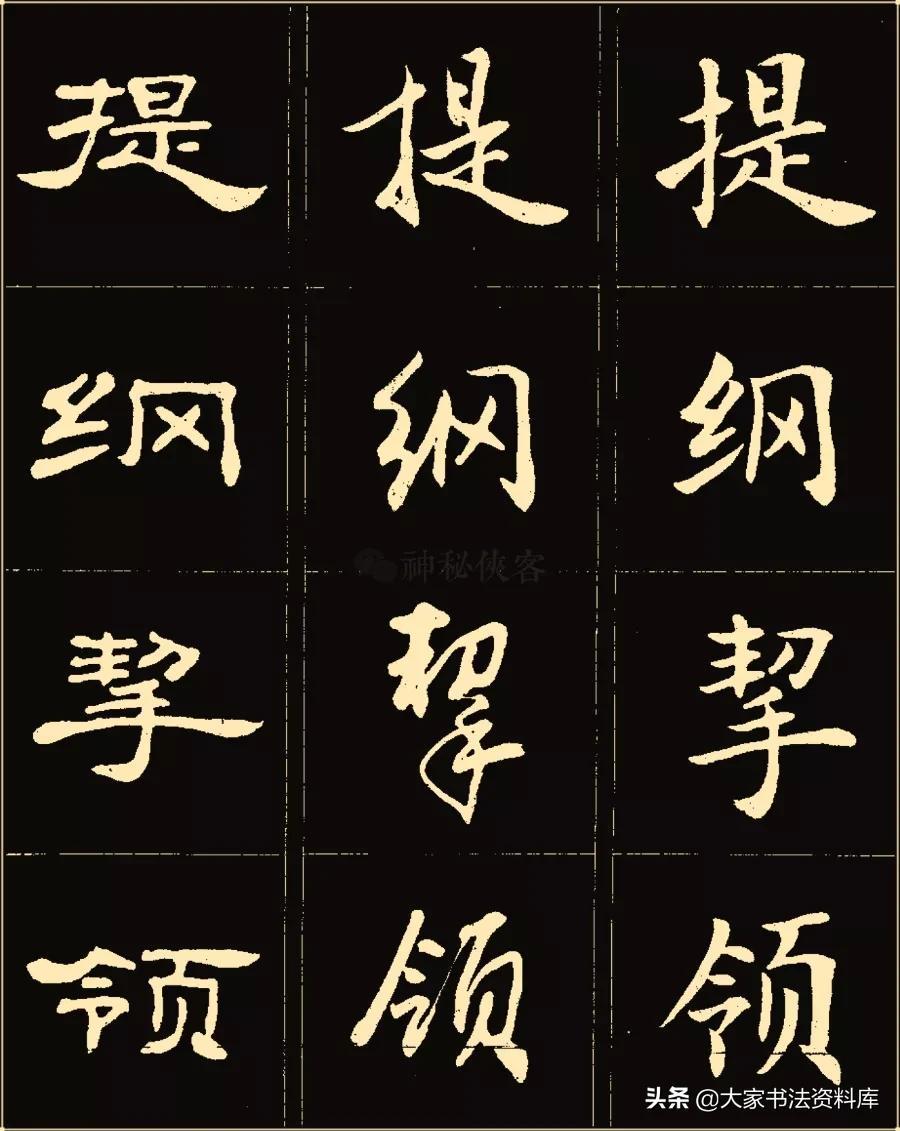 提 提 提
纲 纲 纲
神秘侠客
挈 挈 挈
领 领 领
头条 @大家书法资料库